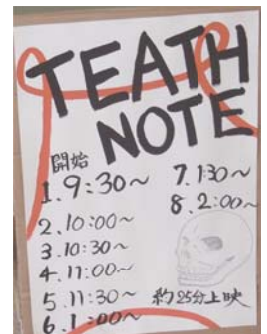 TEATH
NOTE
開始
1.9:30~
2.10:00~
3.10:30~
4.11:00~
5.11:30~
6.1:00~
7.1:30~
8.2:00~
約25分上映